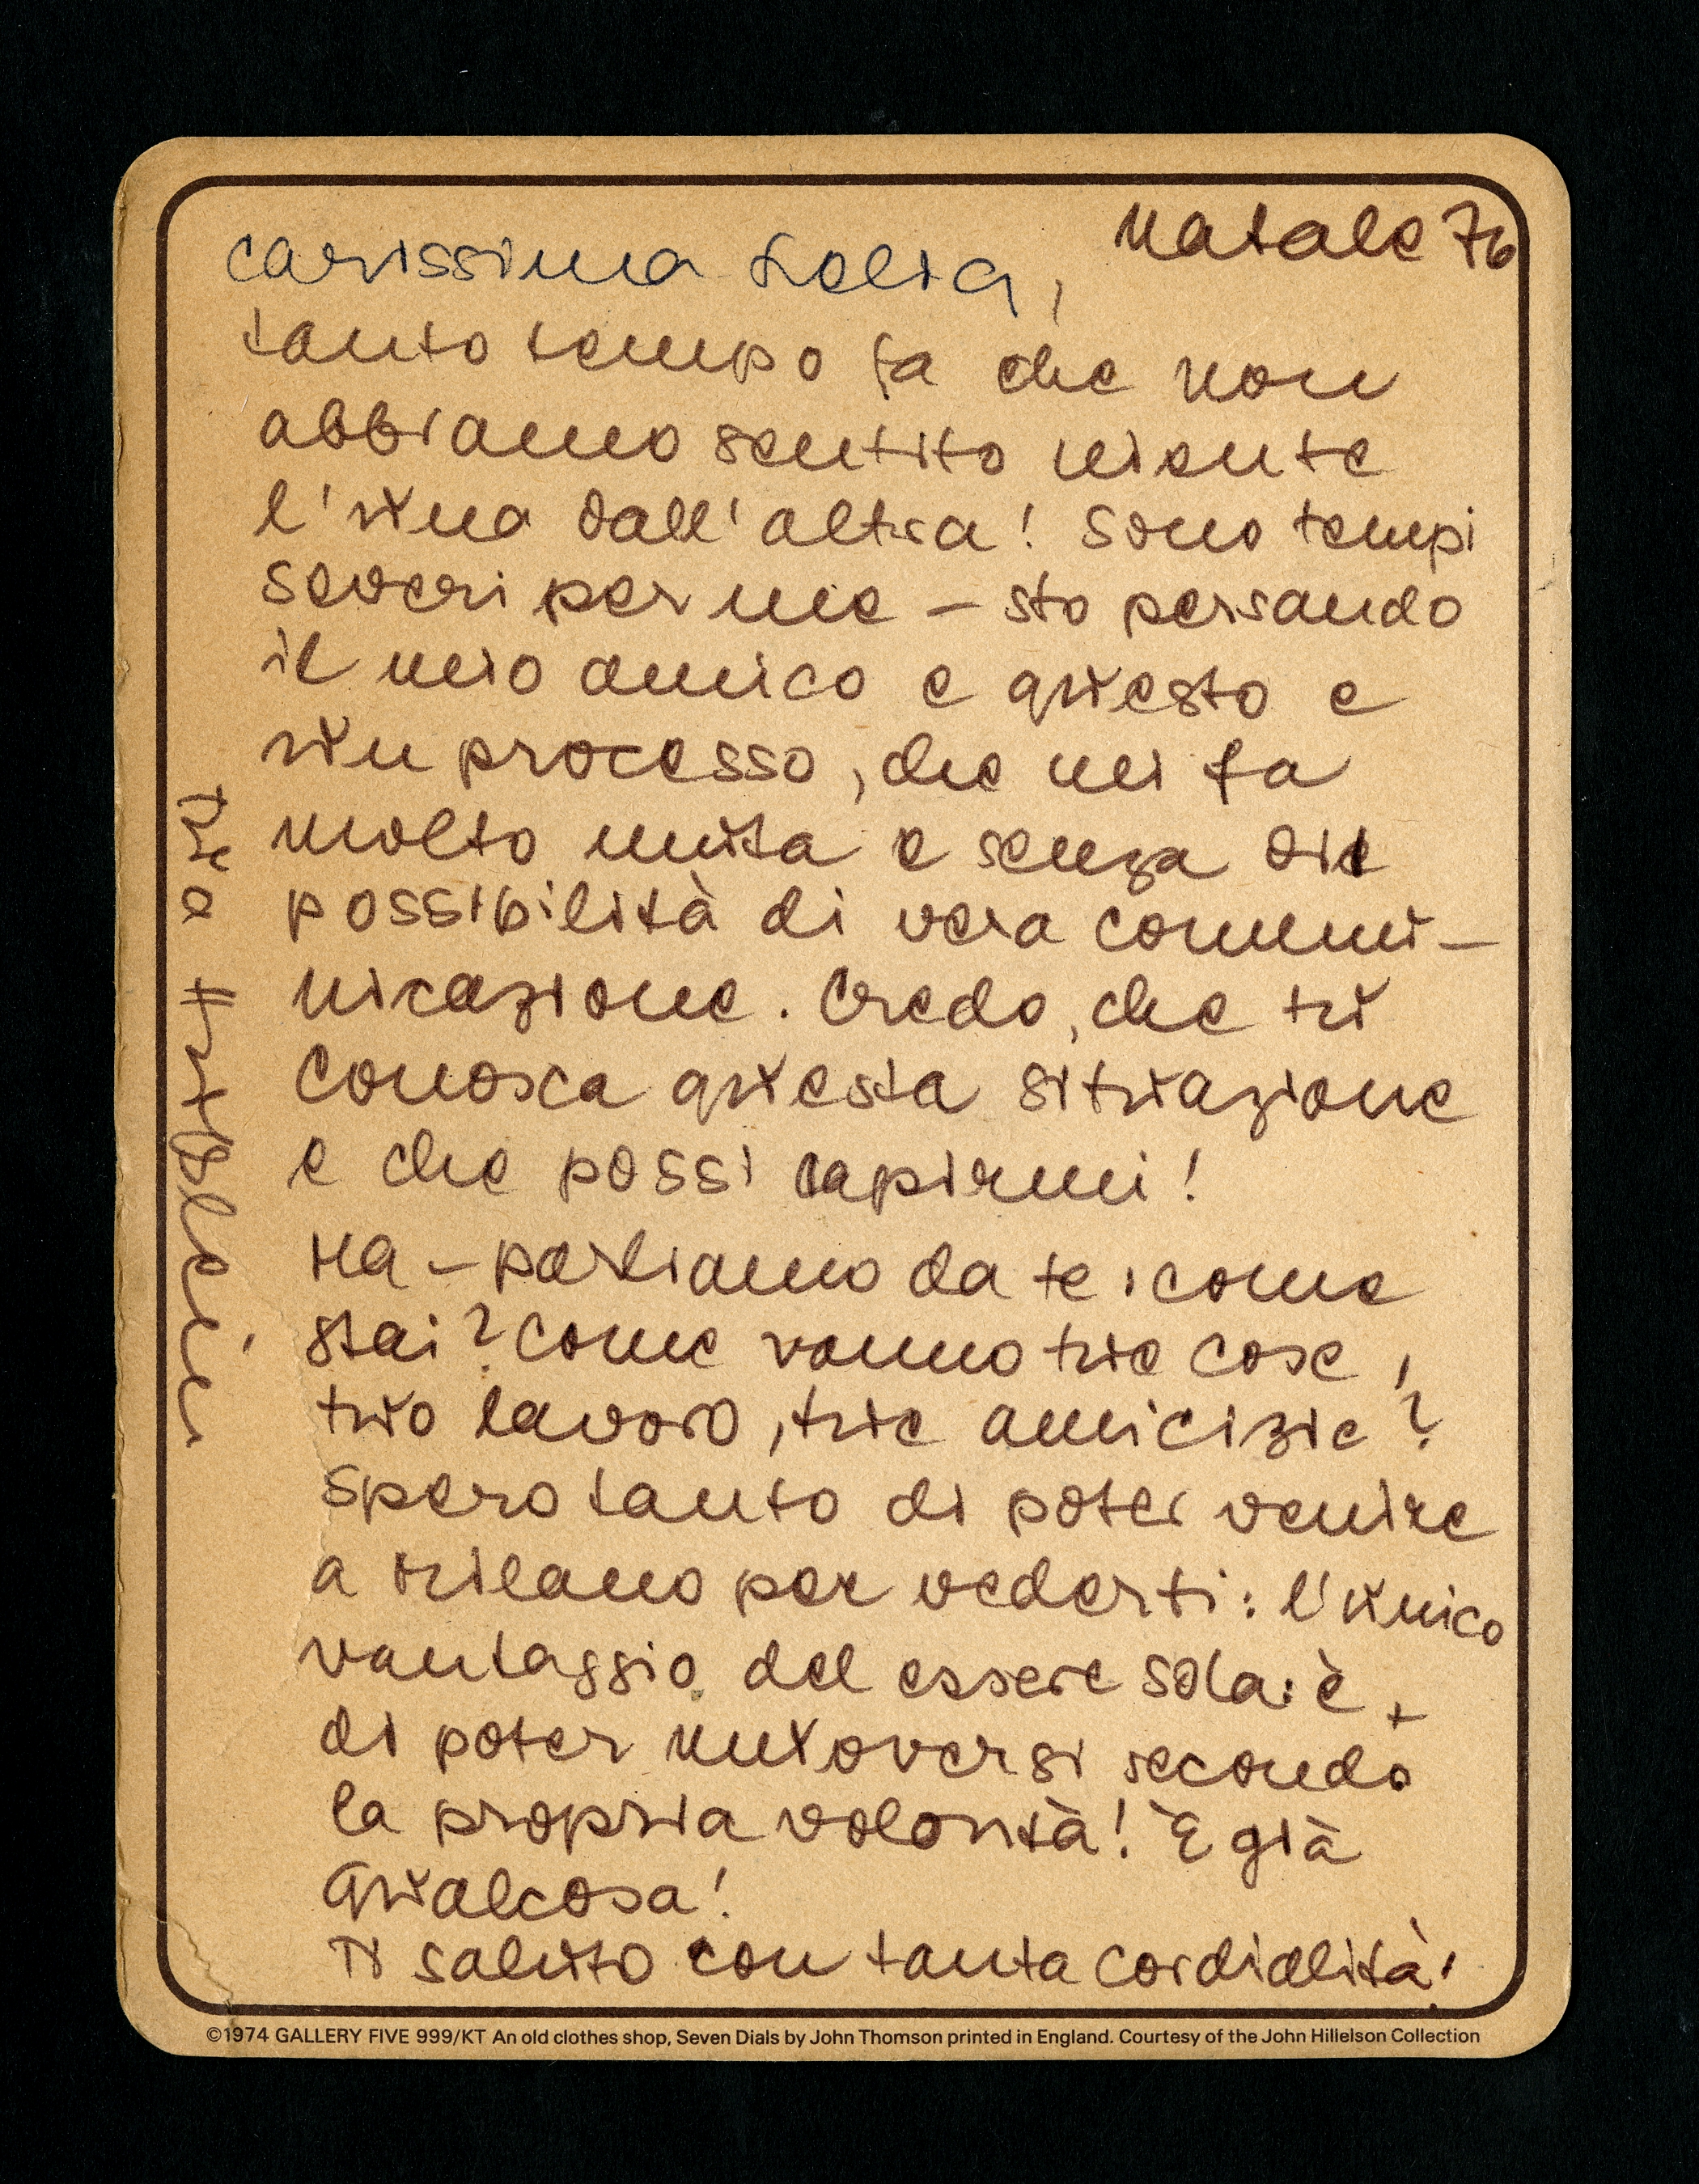 Natale 76
carissima Lelia,
tanto tempo fa che non
abbiamo sentito niente
l'una dall'altra! Sono tempi
severi per me – sto persando
il mio amico e questo e
un processo, che mi fa
molto muta e senza
possibilità di vera commu-
nicazione. Credo, che tu
conosca questa situazione
e che possi capirmi!
Ma – parliamo da te: come
stai? Come vanno tue cose,
tuo lavoro, tue amicizie?
Spero tanto di poter venire
a Milano per vederti: l'unico
vantaggio del essere sola: è
di poter muoversi secondo
la propria volontà! È già
qualcosa!
Ti saluto con tanta cordialità!
tua
©1974 GALLERY FIVE 999/KT An old clothes shop, Seven Dials by John Thomson printed in England. Courtesy of the John Hillelson Collection